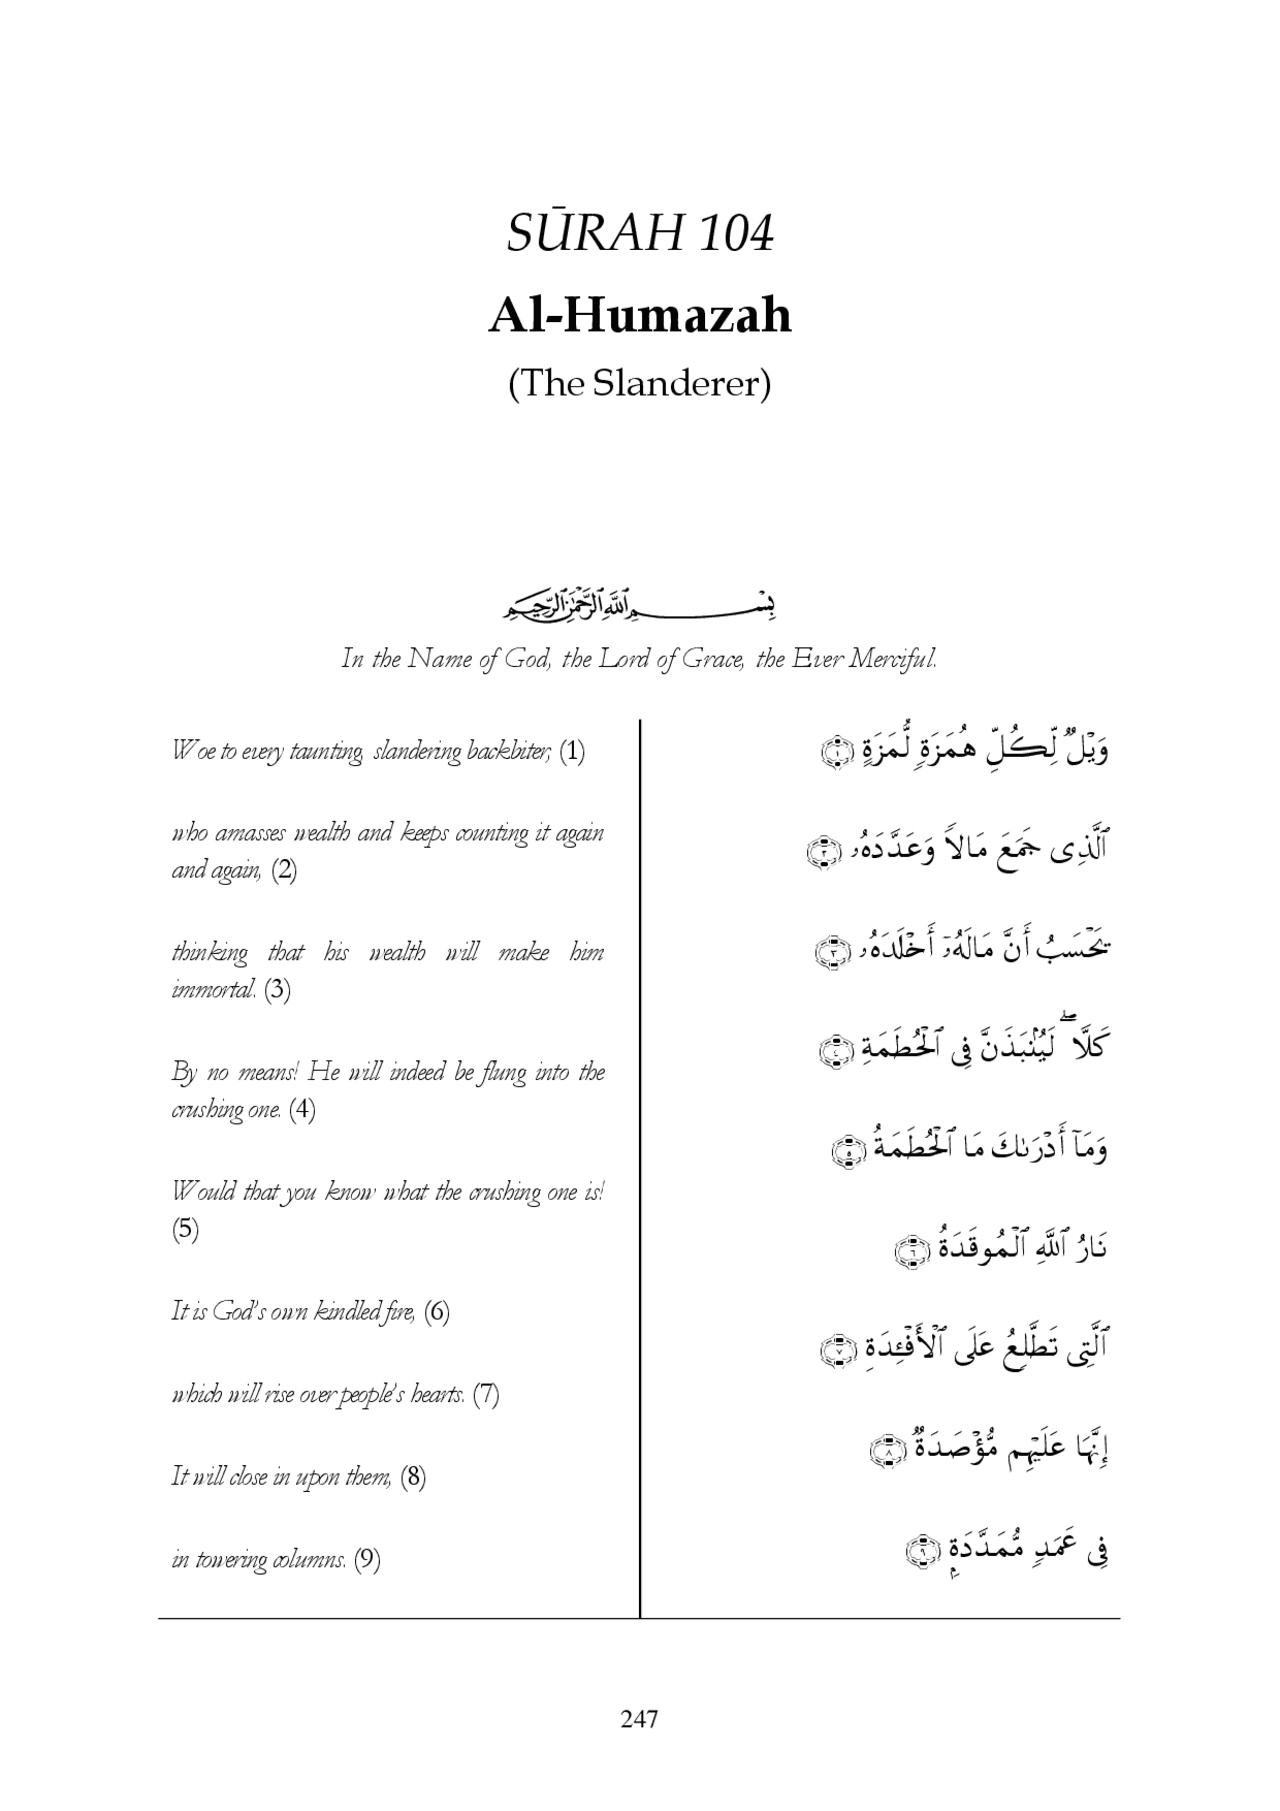 SŪRAH 104
Al-Humazah
(The Slanderer)
بِسْمِ اللَّهِ الرَّحْمَٰنِ الرَّحِيمِ
In the Name of God, the Lord of Grace, the Ever Merciful.
Woe to every taunting, slandering backbiter, (1)
who amasses wealth and keeps counting it again
and again, (2)
thinking that his wealth will make him
immortal. (3)
By no means! He will indeed be flung into the
crushing one. (4)
Would that you know what the crushing one is!
(5)
It is God's own kindled fire, (6)
which will rise over people's hearts. (7)
It will close in upon them, (8)
in towering columns. (9)
وَيْلٌ لِّكُلِّ هُمَزَةٍ لُّمَزَةٍ ١
ٱلَّذِى جَمَعَ مَالًا وَعَدَّدَهُۥ ٢
يَحْسَبُ أَنَّ مَالَهُۥٓ أَخْلَدَهُۥ ٣
كَلَّا ۖ لَيُنۢبَذَنَّ فِى ٱلْحُطَمَةِ ٤
وَمَآ أَدْرَىٰكَ مَا ٱلْحُطَمَةُ ٥
نَارُ ٱللَّهِ ٱلْمُوقَدَةُ ٦
ٱلَّتِى تَطَّلِعُ عَلَى ٱلْأَفْـِٔدَةِ ٧
إِنَّهَا عَلَيْهِم مُّؤْصَدَةٌ ٨
فِى عَمَدٍ مُّمَدَّدَةٍۭ ٩
247